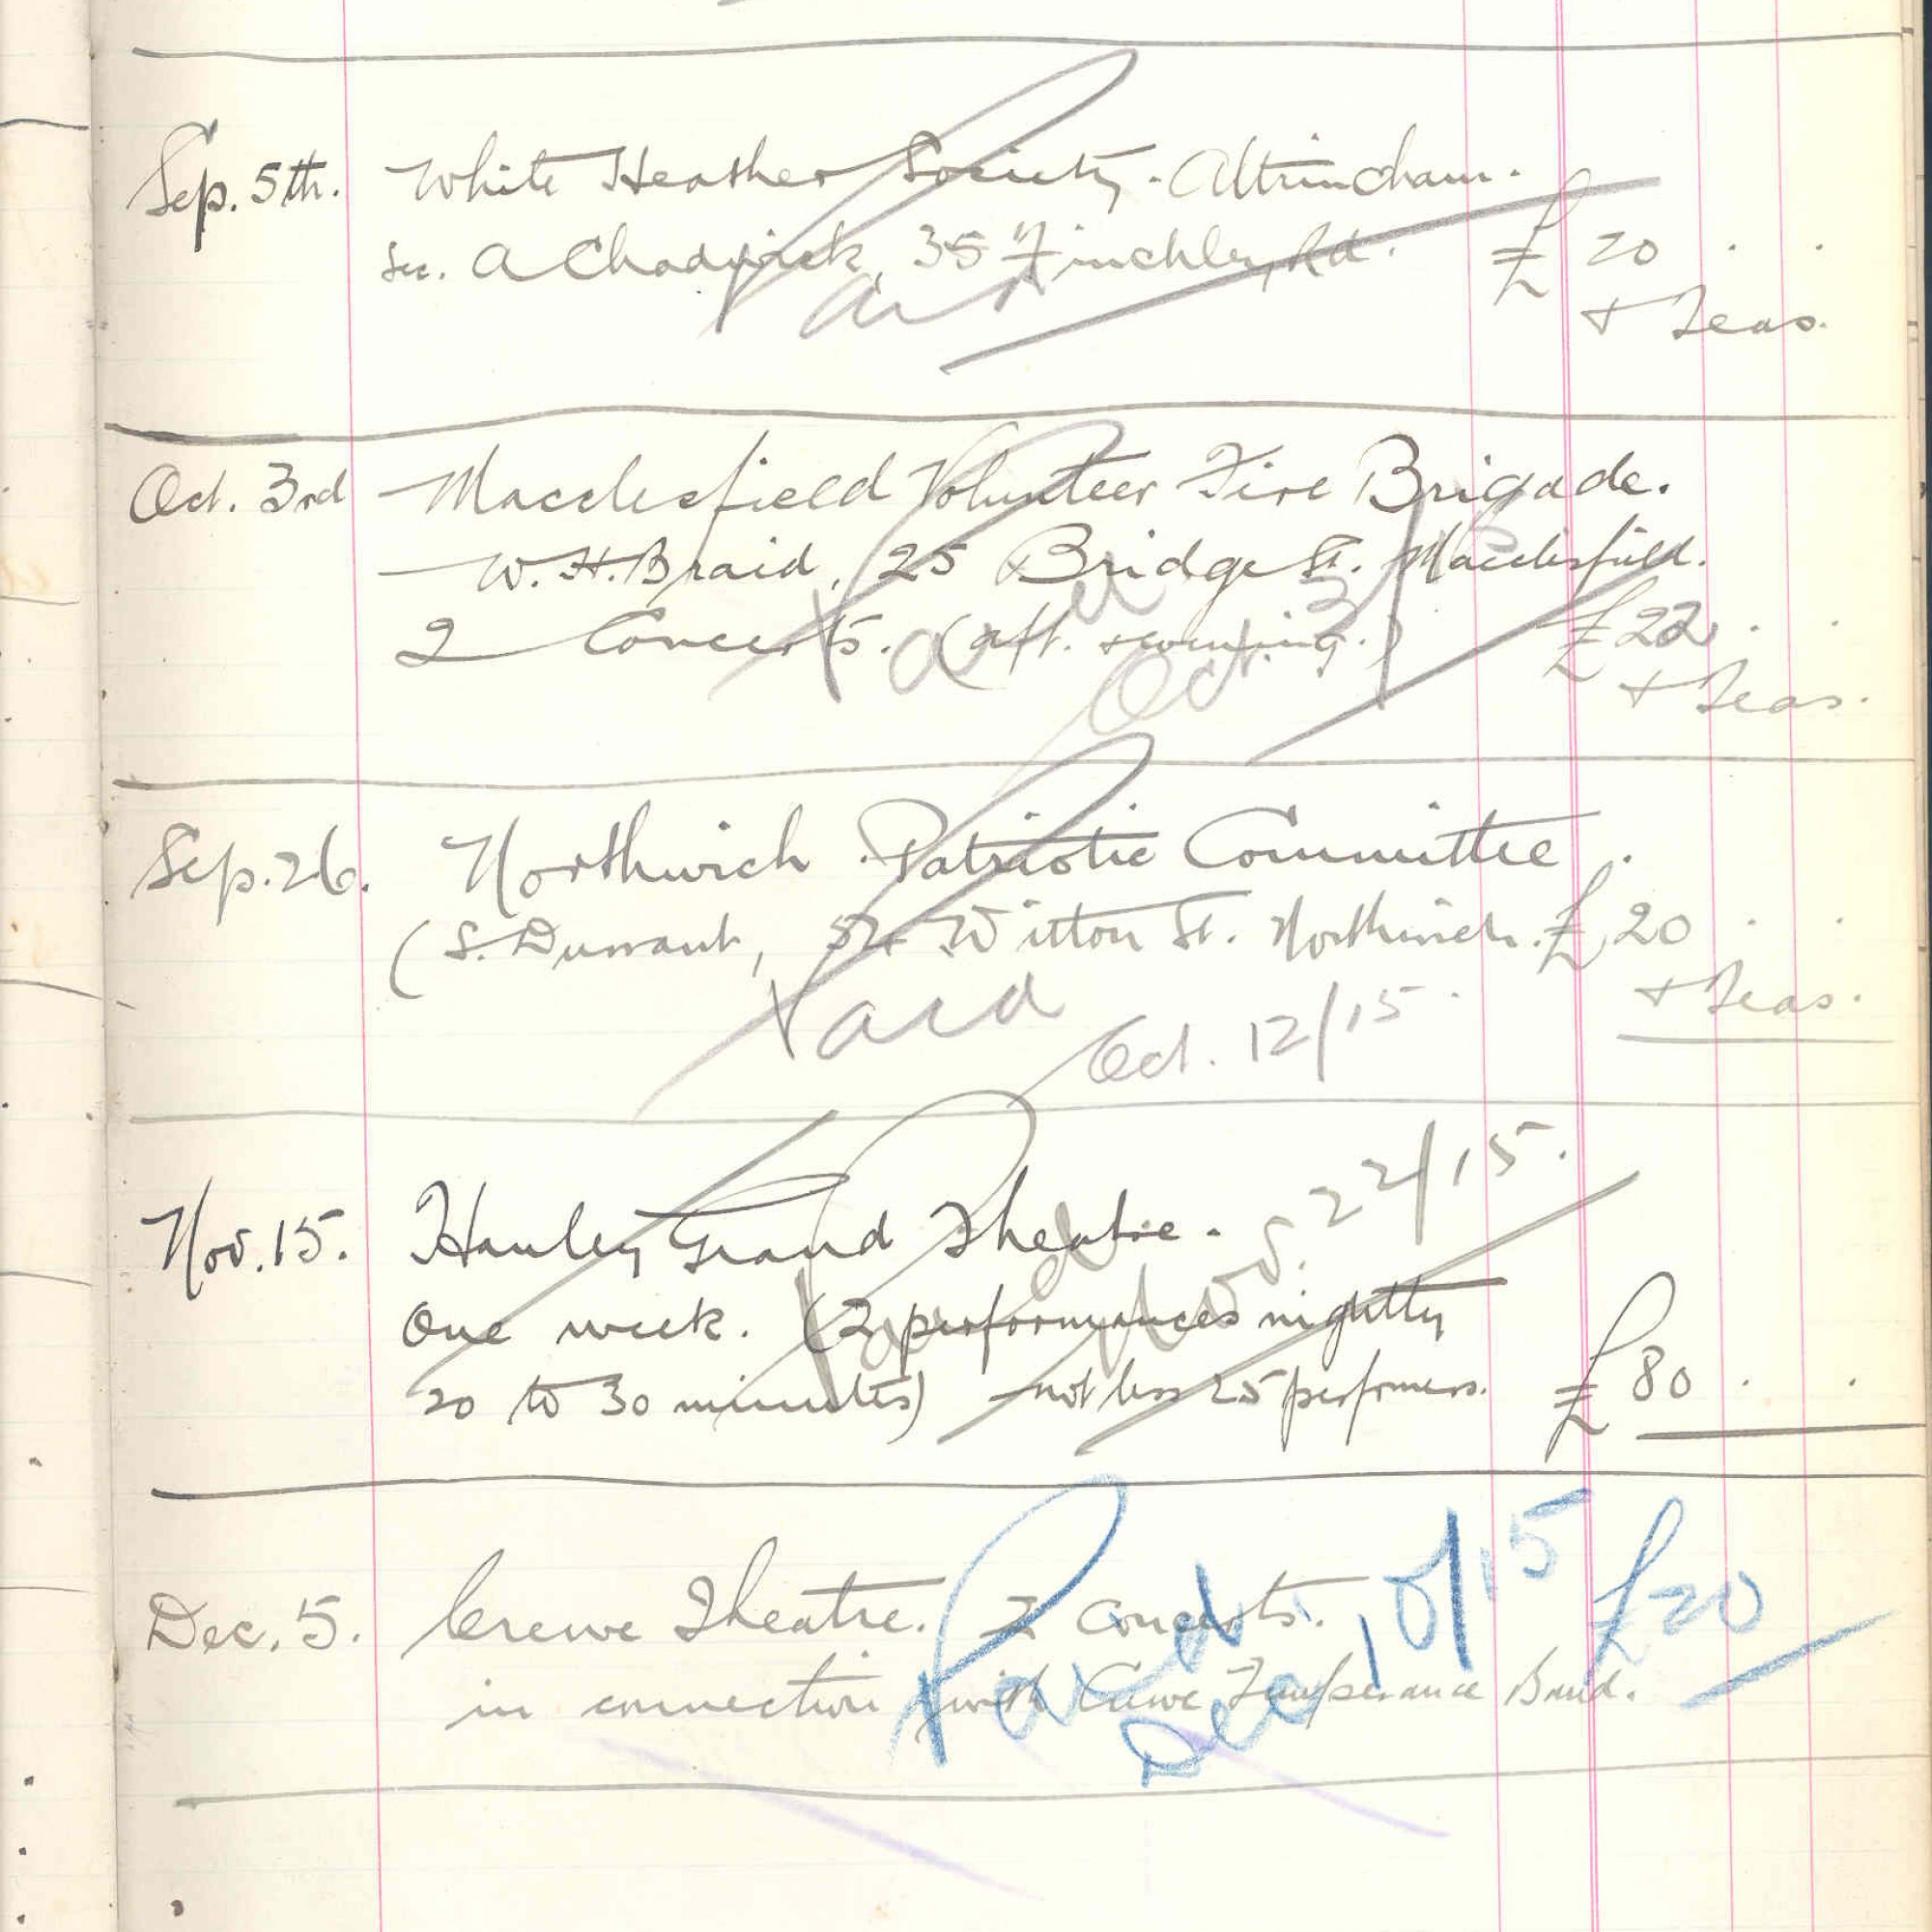 Sep. 5th. White Heather Society. Altrincham.
Sec. A Chadwick, 35 Finchley Rd. £20 . .
+ Teas.
Paid
Oct. 3rd Macclesfield Volunteer Fire Brigade.
W. H. Braid, 25 Bridge St. Macclesfield.
2 Concerts. (aft. + evening.) £22 . .
+ Teas.
Paid
Oct. 3/
Sep. 26. Northwich Patriotic Committee.
(S. Durrant, Witton St. Northwich. £20 . .
+ Teas.
Paid
Oct. 12/15.
Nov. 15. Hanley Grand Theatre.
One week. (2 performances nightly
20 to 30 minutes) not less 25 performers. £80 . .
Paid Nov. 22/15.
Dec. 5. Crewe Theatre. 2 Concerts. £20
in connection with Crewe Temperance Band.
Paid
Dec 10/15